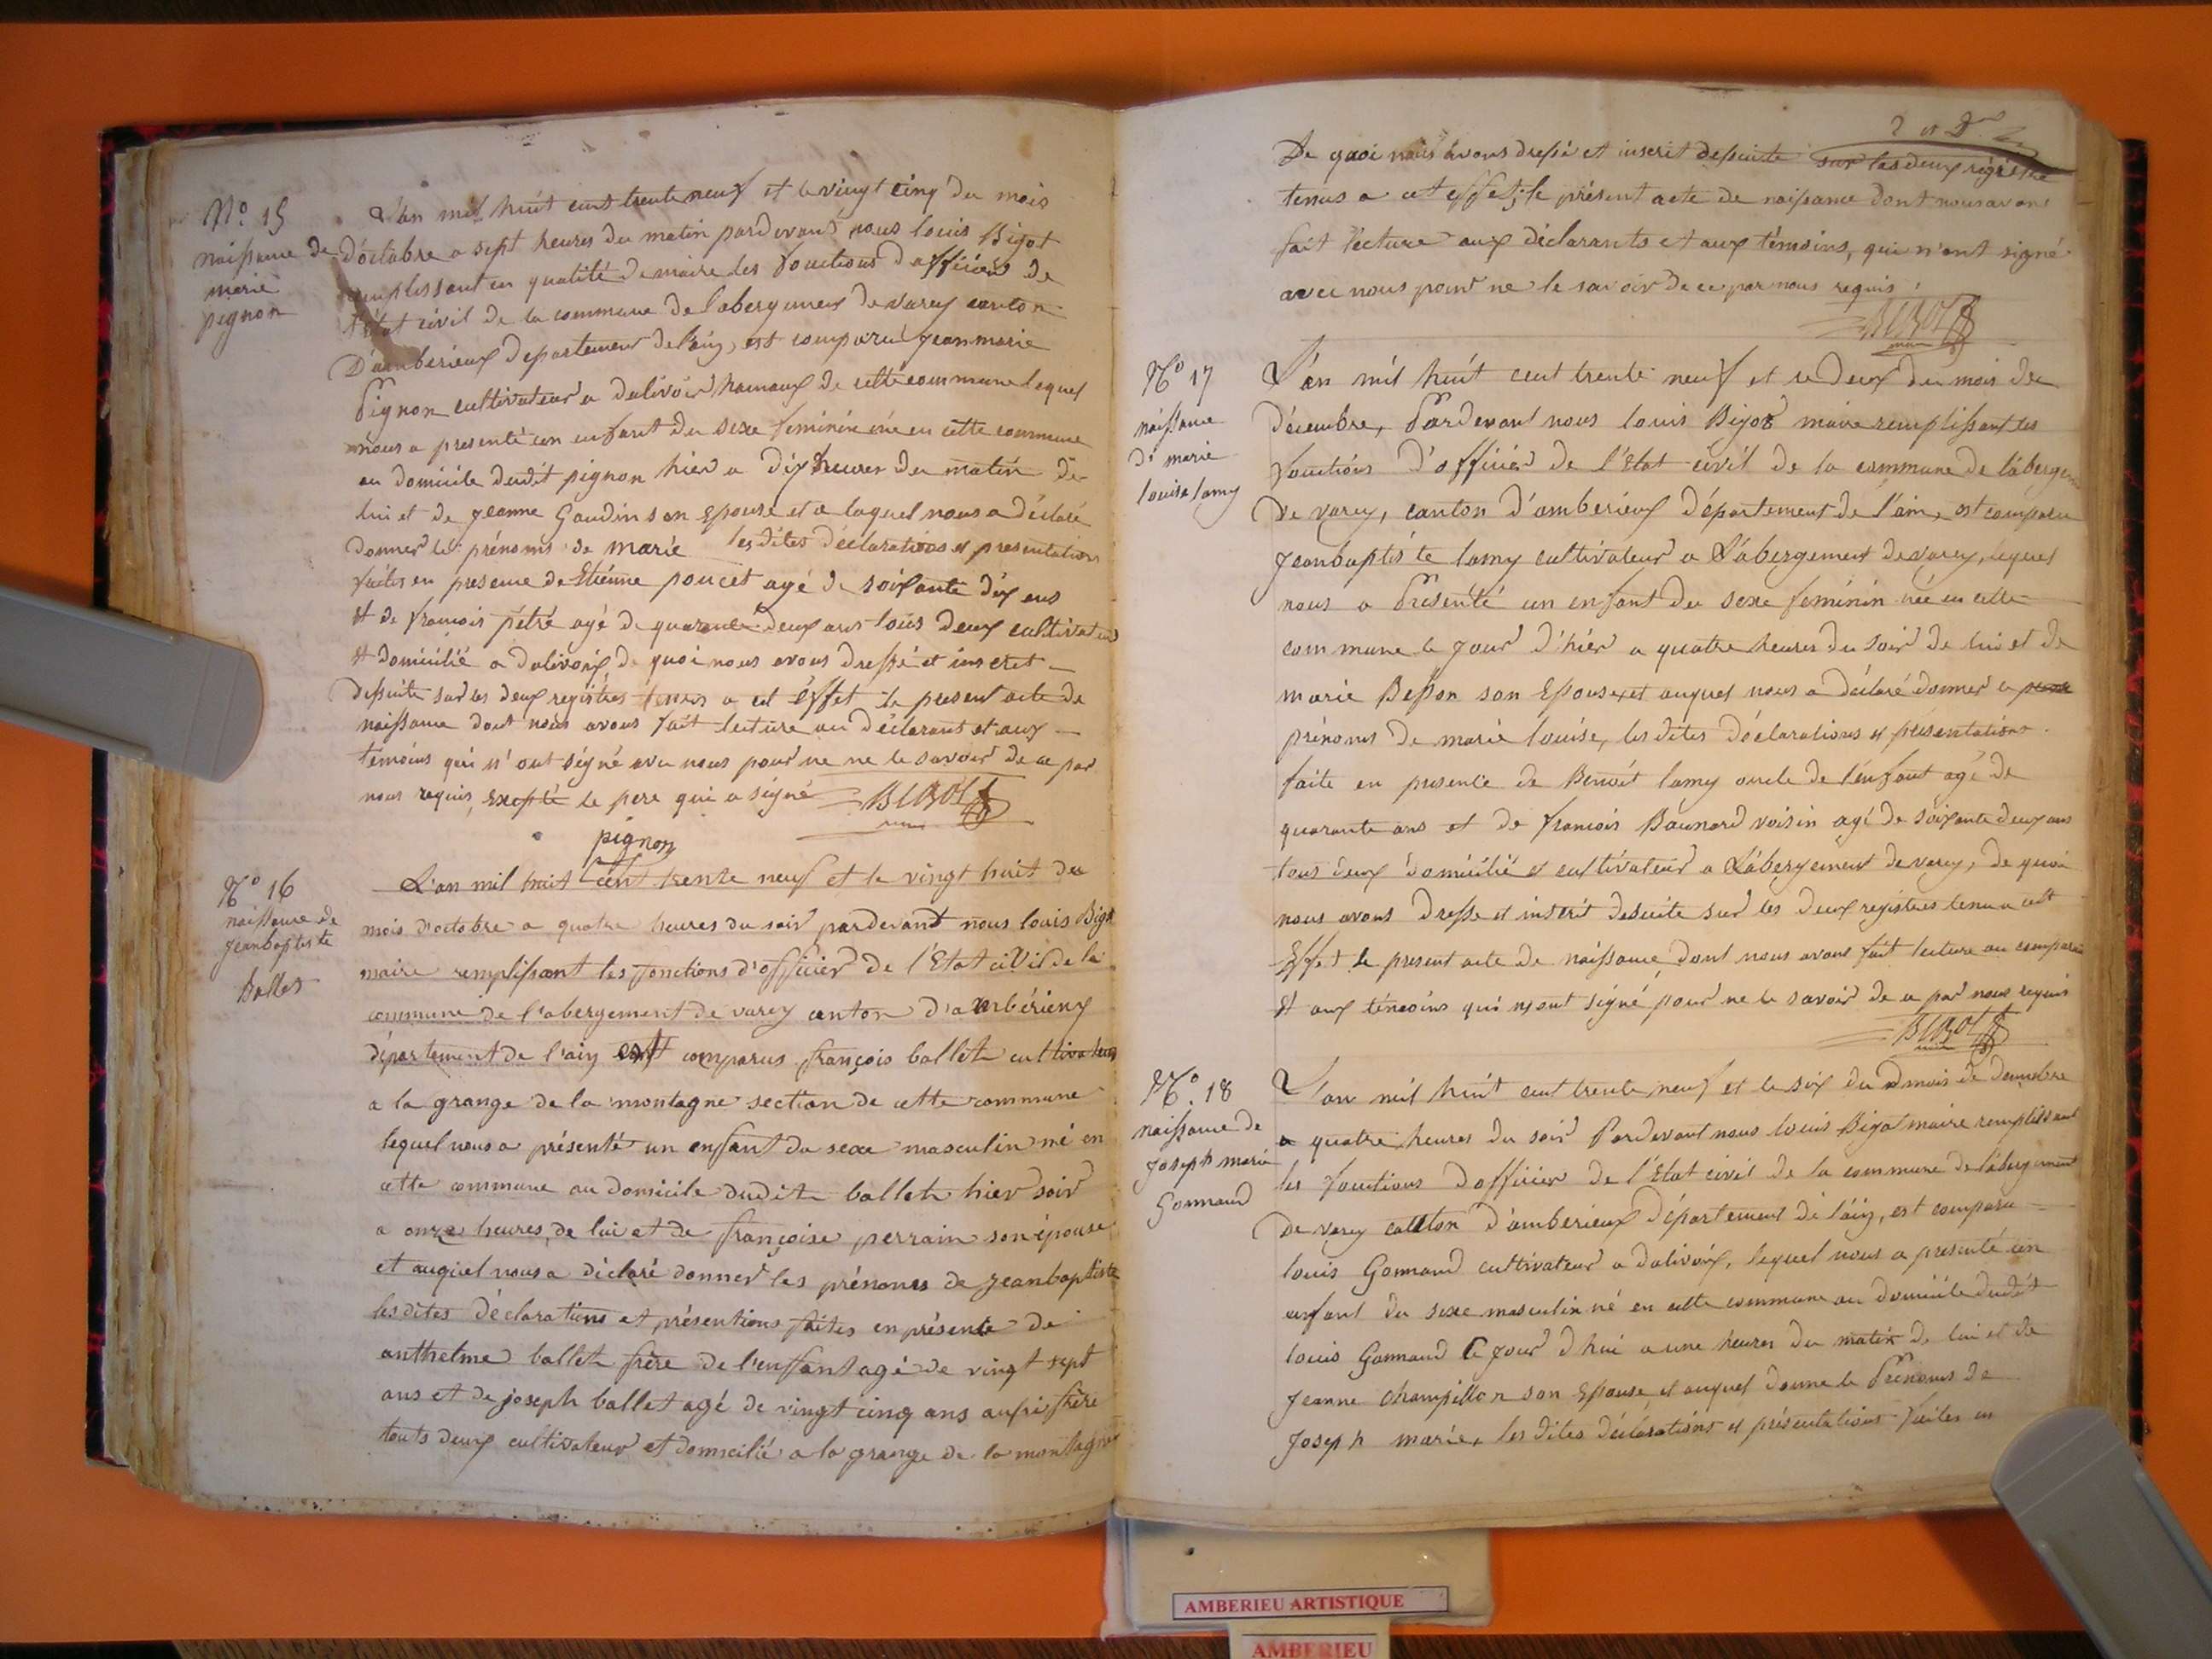 N° 15
naissance de
marie
pignon
L'an mil huit cent trente neuf et le vingt cinq du mois
d'octobre a sept heures du matin pardevant nous louis Bigot
remplissant en qualité de maire les fonctions d'officier de
l'état civil de la commune de l'abergement de varey canton
D'amberieux departement de l'ain, est comparu jean marie
Pignon cultivateur a dalivoir hamaux de cette commune lequel
nous a presenté un enfant du sexe feminin née en cette commune
au domicile dudit pignon hier a dix heures du matin de
lui et de jeanne Gaudin son Epouse et a laquel nous a déclaré
donner le prénoms de marie les dites déclarations et presentations
faites en presence de Etiénne poncet agé de soixante dix ans
et de françois pétré agé de quarante deux ans tous deux cultivateurs
et domicilié a dalivoix de quoi nous avons dressé et inscrit
dessuite sur les deux registres tenus a cet éffet le present acte de
naissance dont nous avons fait lecture au déclarant et aux
temoins qui n'ont signé avec nous pour ne ne le savoir de ce par
nous requis, excepté le pere qui a signé BIGOT
maire
pignon
N° 16
naissance de
jeanbaptiste
Ballet
L'an mil huit cent trente neuf et le vingt huit du
mois d'octobre a quatre heures du soir pardevant nous louis Bigot
maire remplissant les fonctions d'officier de l'Etat civil de la
commune de l'abergement de varey canton d'ambérieux
département de l'ain est comparus françois ballet cultivateur
a la grange de la montagne section de cette commune
lequel nous a présenté un enffant du sexe masculin né en
cette commune au domicile dudit ballet hier soir
a onze heures, de lui et de françoise perrain son épouse
et auquel nous a déclaré donner les prénoms de jeanbaptiste
les dites déclarations et présentions faites en présente de
anthelme ballet frère de l'enffant agé de vingt sept
ans et de joseph ballet agé de vingt cinq ans aussi frère
touts deux cultivateur et domicilié a la grange de la montagne
De quoi nous avons dressé et inscrit dessuite sur les deux régistre
tenus a cet effet; le présent acte de naissance dont nous avons
fait lecture aux déclarants et aux témoins, qui n'ont signé
avec nous pour ne le savoir de ce par nous requis
BIGOT
maire
N° 17
naissance
de marie
louise lamy
L'an mil huit cent trente neuf et le deux du mois de
décembre, Pardevant nous louis Bigot maire remplissant les
fonctions d'officier de l'Etat civil de la commune de l'abergement
De varey, canton d'amberieux département de l'ain, est comparu
jeanbaptiste lamy cultivateur a L'abergement de varey, lequel
nous a Presenté un enfant du sexe feminin née en cette
commune le jour d'hier a quatre heures du soir de lui et de
marie Besson son Epouse, et auquel nous a déclaré donner le
prénoms de marie louise, les dites déclarations et présentations
faite en presence de Benoit lamy oncle de l'enfant agé de
quarante ans et de françois Bounard voisin agé de soixante deux ans
tous deux domicilié et cultivateur a L'abergement de varey, de quoi
nous avons dressé et inscrit desuite sur les deux registres tenu a cet
Effet le present acte de naissance, dont nous avons fait lecture au comparu
et aux témoins qui n'ont signé pour ne le savoir de ce par nous requis
BIGOT
maire
N° 18
naissance de
joseph marie
Gonnand
L'an mil huit cent trente neuf et le six du mois de decembre
a quatre heures du soir Pardevant nous louis Bigot maire remplissant
les fonctions d'officier de l'Etat civil de la commune de l'abergement
De varey canton d'amberieux département de l'ain, est comparu
louis Gonnand cultivateur a dalivoix, lequel nous a presenté un
enfant du sexe masculin né en cette commune au domicile dudit
louis Gonnand ce jour d'hui a une heures du matin de lui et de
jeanne champillon son Epouse, et auquel donne le Prénoms de
joseph marie, les dites déclarations et présentations faites en
AMBERIEU ARTISTIQUE
AMBERIEU